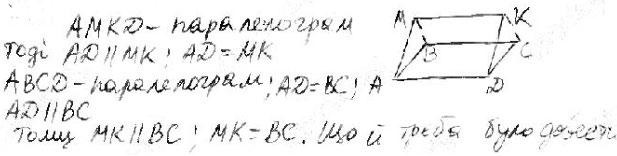 AMKD - паралелограм
тоді AD || MK; AD = MK
ABCD - паралелограм; AD = BC;
AD || BC
Тому MK || BC; MK = BC. Що й треба було довести
M K
B C
A D